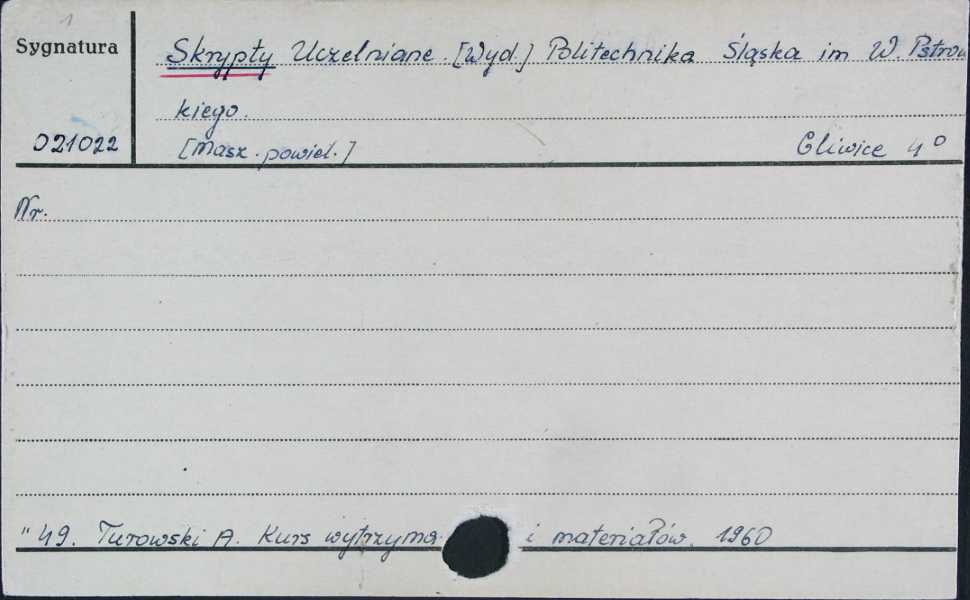 1
Sygnatura
Skrypty Uczelniane. [Wyd.] Politechnika Śląska im W. Pstrow
kiego.
021022
[Masz. powiel.] Gliwice 4°
Nr.
" 49. Turowski A. Kurs wytrzyma i materiałów. 1960